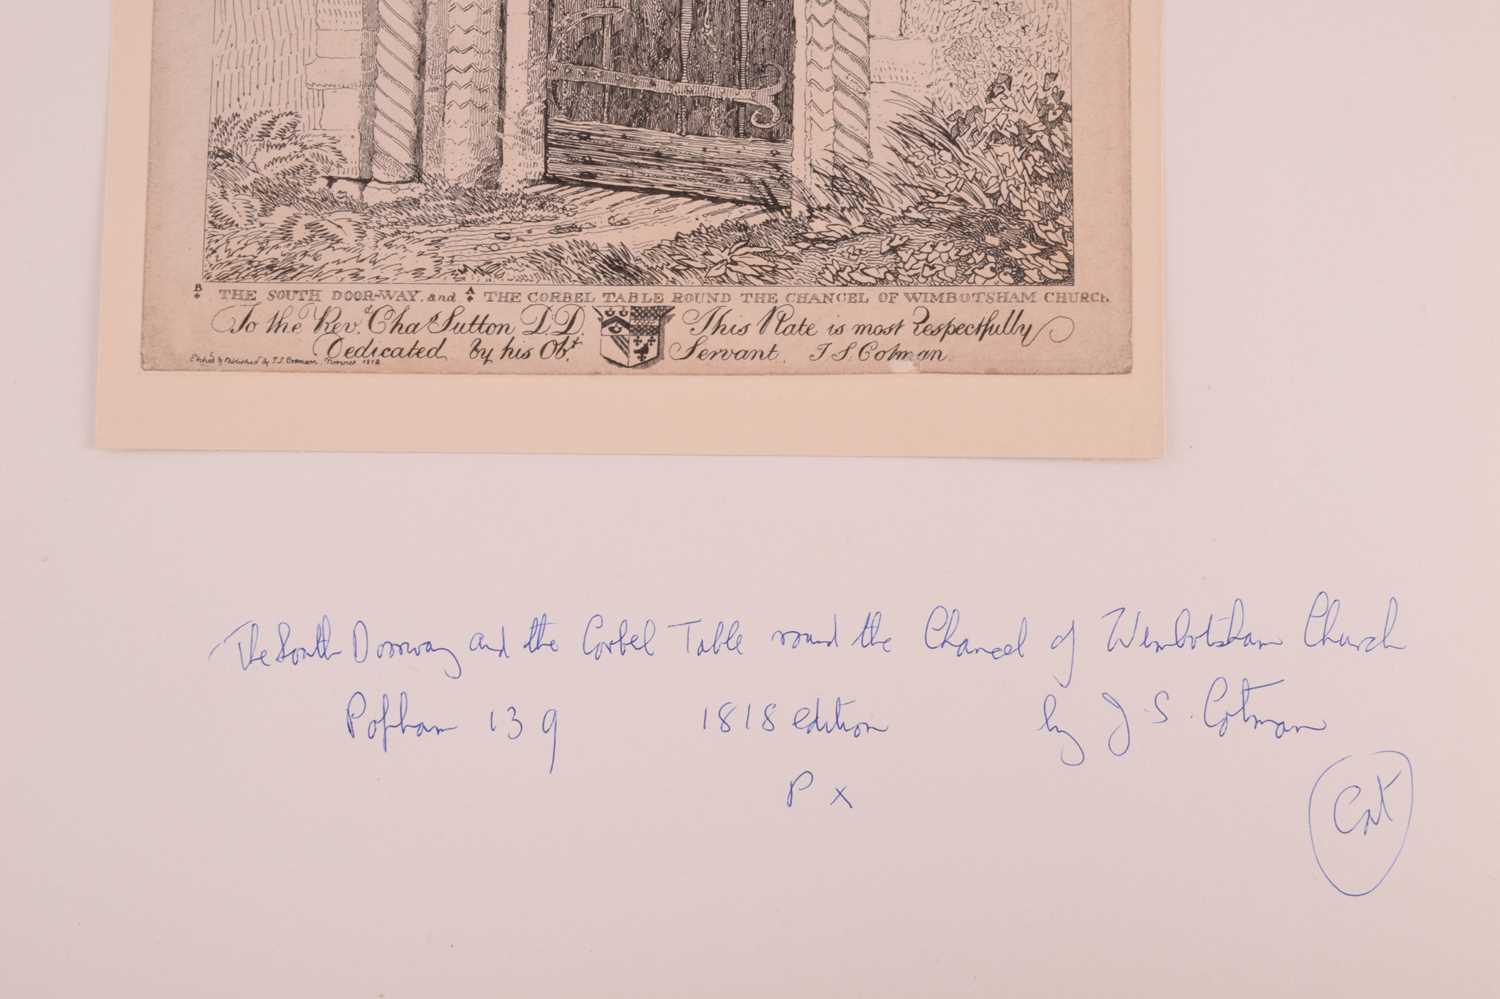 B THE SOUTH DOOR-WAY, and A THE CORBEL TABLE ROUND THE CHANCEL OF WIMBOTSHAM CHURCH.
To the Rev.d Cha.s Sutton D.D. This Plate is most Respectfully
Dedicated by his Ob.t Servant. J S Cotman.
Etched & Published by J.S. Cotman, 1812
The South Doorway and the Corbel Table round the Chancel of Wimbotsham Church
Popham 139 1818 edition by J. S. Cotman
P x
Cat